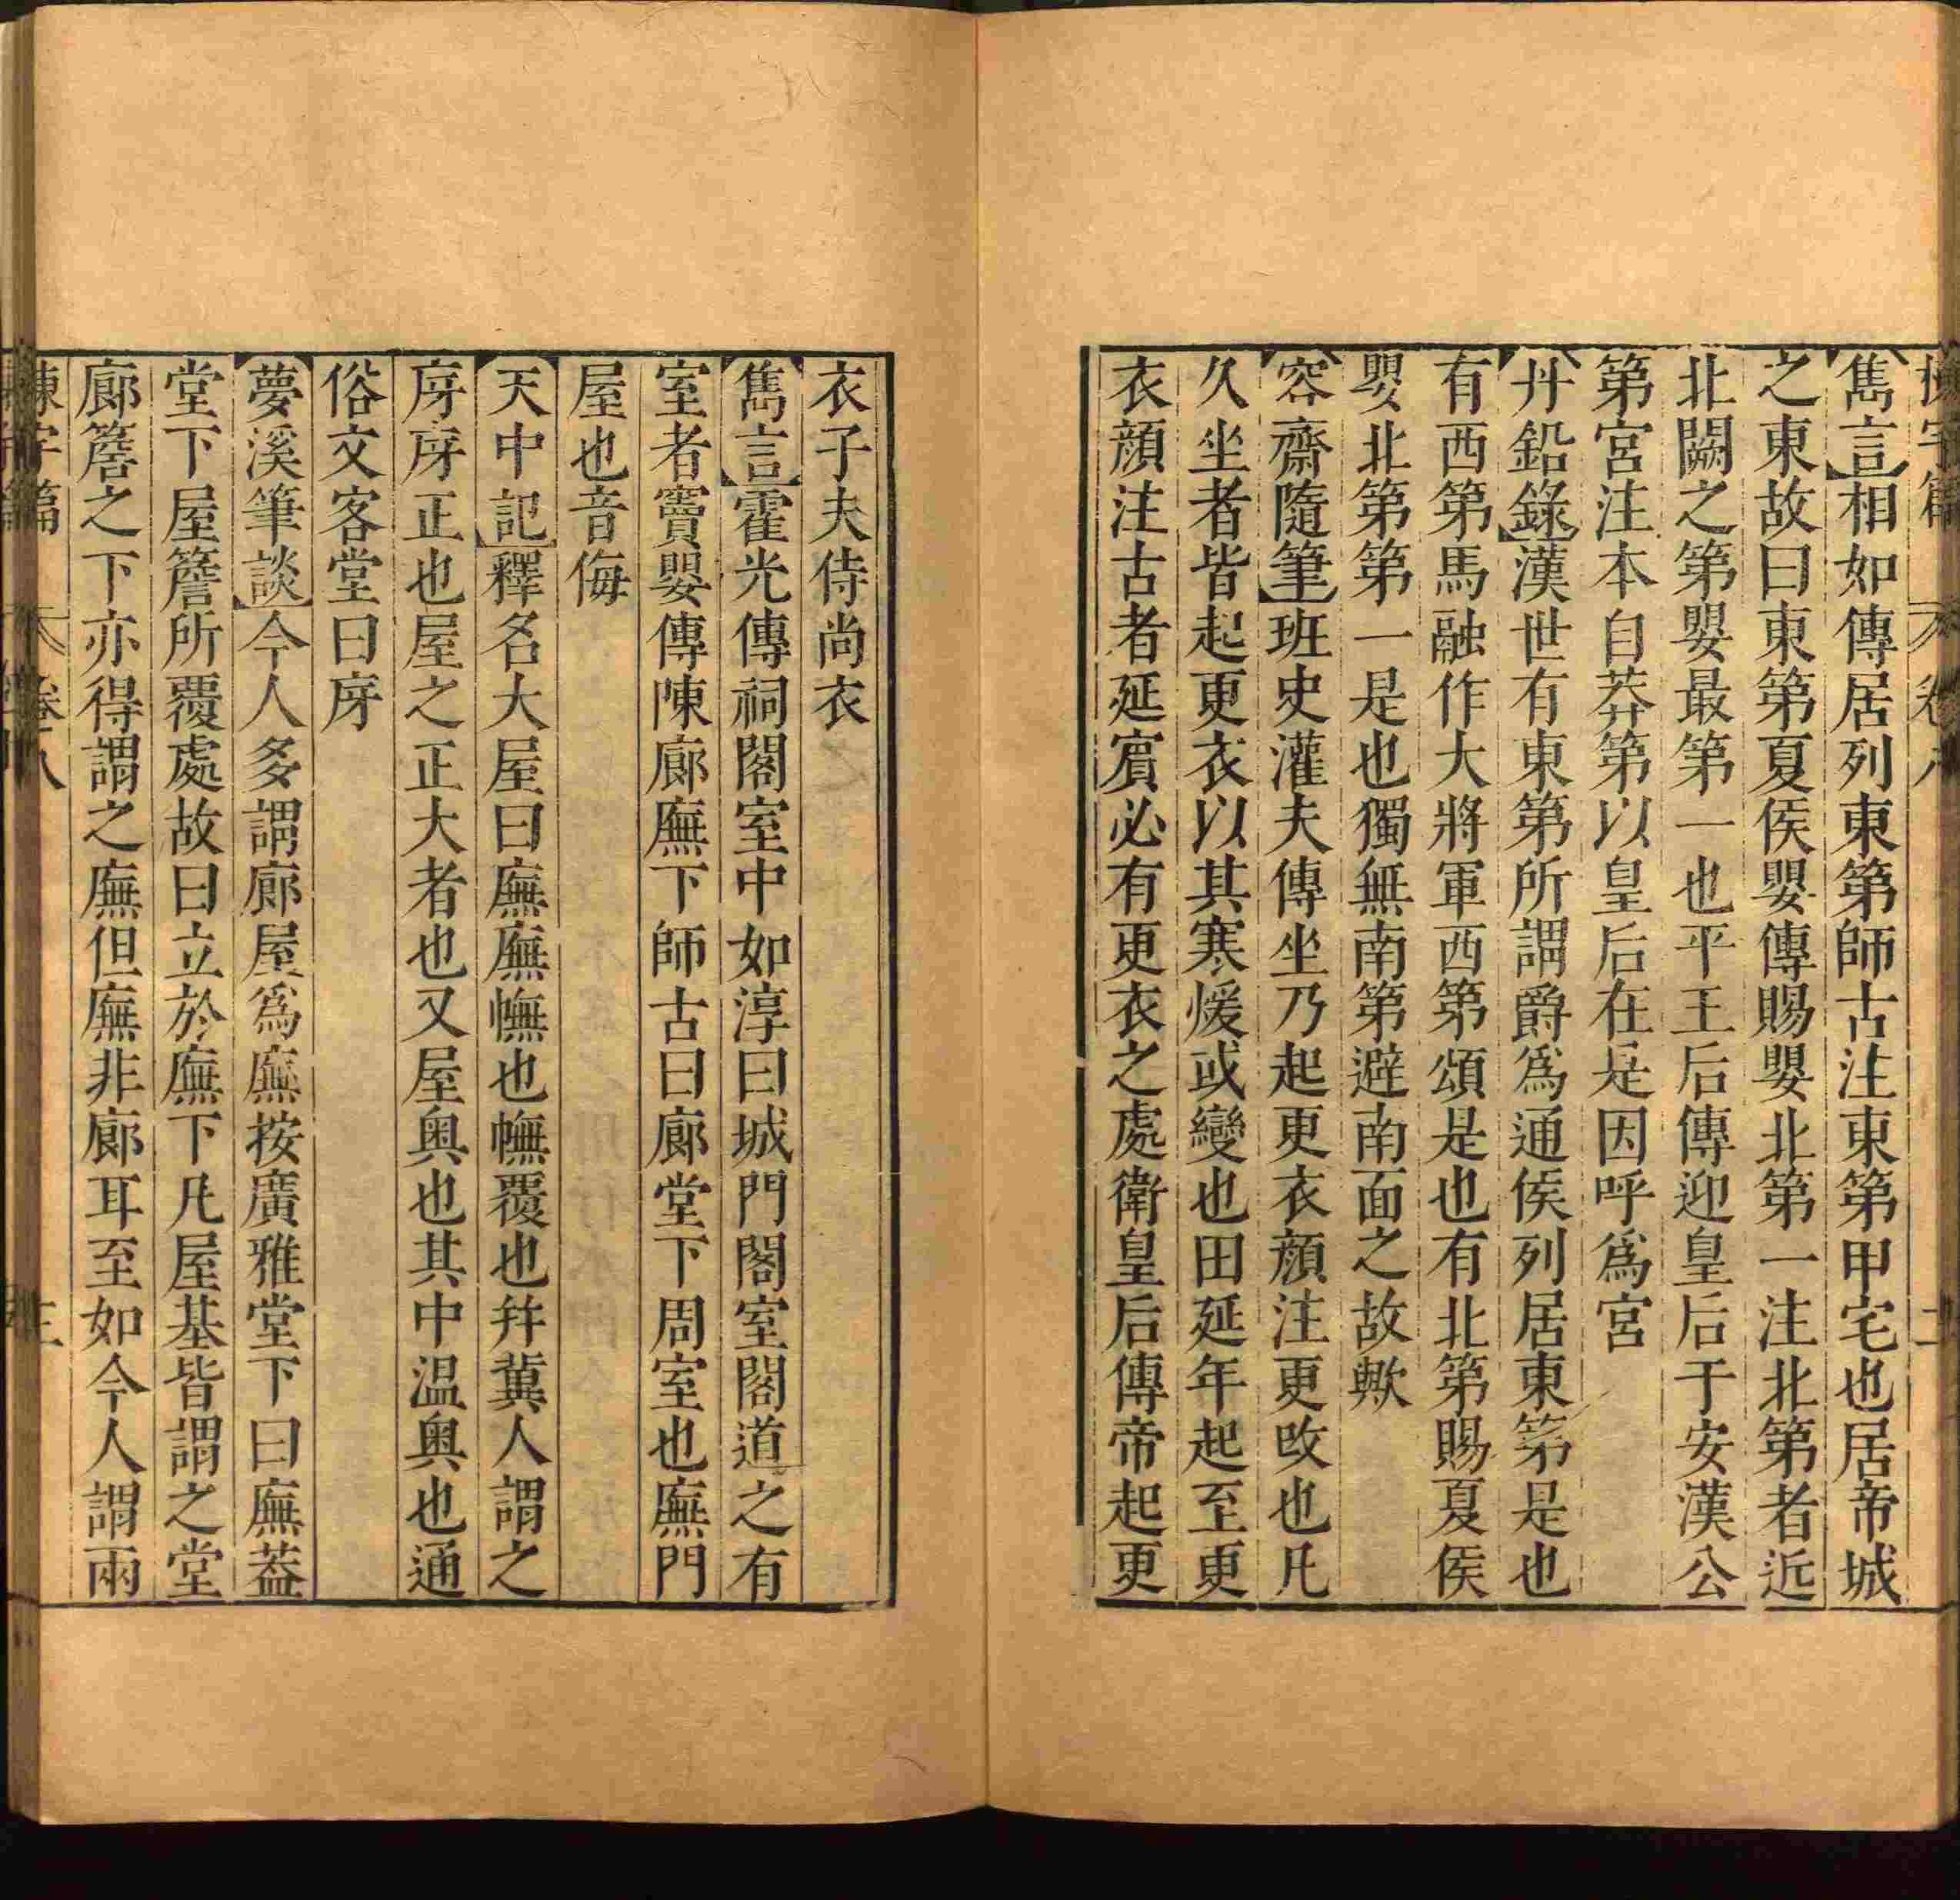 雋言相如傳居列東第師古注東第甲宅也居帝城
之東故曰東第夏侯嬰傳賜嬰北第一注北第者近
北闕之第嬰最第一也平王后傳迎皇后于安漢公
第宮注本自莽第以皇后在是因呼爲宮
丹鉛錄漢世有東第所謂爵爲通侯列居東第是也
有西第馬融作大將軍西第頌是也有北第賜夏侯
嬰北第第一是也獨無南第避南面之故歟
容齋隨筆班史灌夫傳坐乃起更衣顔注更改也凡
久坐者皆起更衣以其寒煖或變也田延年起至更
衣顔注古者延賔必有更衣之處衛皇后傳帝起更
衣子夫侍尚衣
雋言霍光傳祠閣室中如淳曰城門閣室閣道之有
室者竇嬰傳陳廊廡下師古曰廊堂下周室也廡門
屋也音侮
天中記釋名大屋曰廡廡幠也幠覆也幷冀人謂之
庌庌正也屋之正大者也又屋奥也其中温奥也通
俗文客堂曰庌
夢溪筆談今人多謂廊屋爲廡按廣雅堂下曰廡葢
堂下屋簷所覆處故曰立於廡下凡屋基皆謂之堂
廊簷之下亦得謂之廡但廡非廊耳至如今人謂兩
字篇 卷八 三